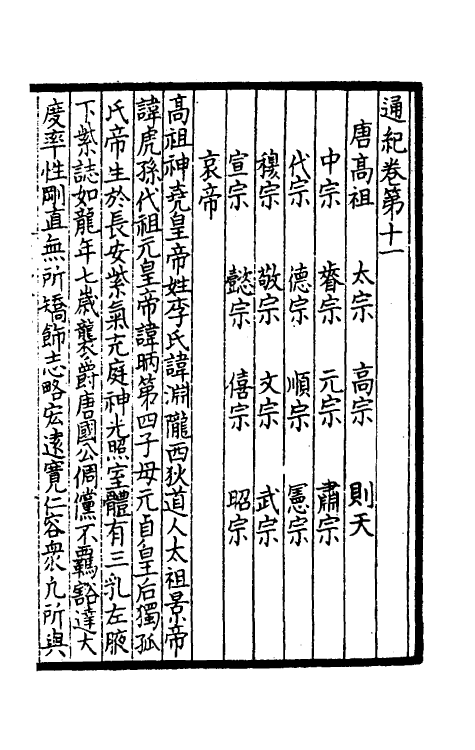 通紀卷第十一
唐高祖　太宗　高宗　則天
中宗　睿宗　元宗　肅宗
代宗　德宗　順宗　憲宗
穆宗　敬宗　文宗　武宗
宣宗　懿宗　僖宗　昭宗
哀帝
高祖神堯皇帝姓李氏諱淵隴西狄道人太祖景帝
諱虎孫代祖元皇帝諱昞第四子母元貞皇后獨孤
氏帝生於長安紫氣充庭神光照室體有三乳左腋
下紫誌如龍年七歲襲爵唐國公倜儻不羈豁達大
度率性剛直無所矯飾志略宏遠寬仁容衆凢所與